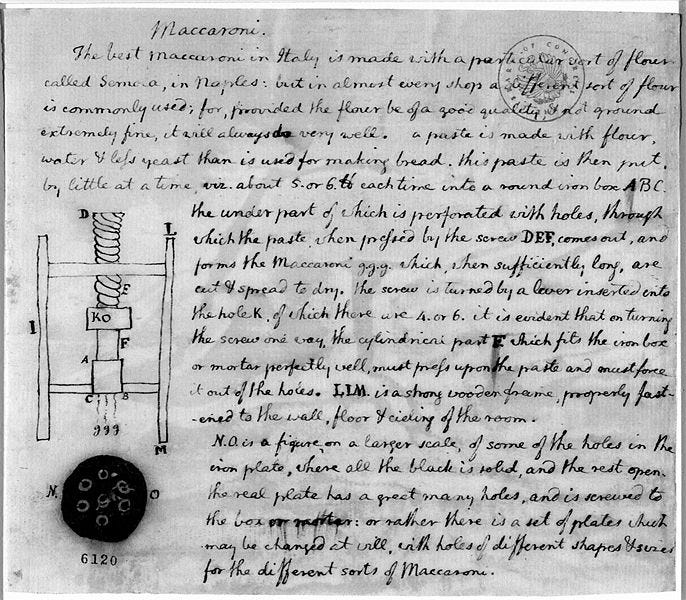 Maccaroni.
The best maccaroni in Italy is made with a particular sort of flour
called Semola, in Naples: but in almost every shop a different sort of flour
is commonly used; for, provided the flour be of a good quality, & not ground
extremely fine, it will always do very well. a paste is made with flour,
water & less yeast than is used for making bread. this paste is then put,
by little at a time, viz. about 5. or 6. ℔ each time into a round iron box ABC.
the under part of which is perforated with holes, through
which the paste, when pressed by the screw DEF, comes out, and
forms the Maccaroni g.g.g. which, when sufficiently long, are
cut & spread to dry. the screw is turned by a lever inserted into
the hole K. of which there are 4. or 6. it is evident that on turning
the screw one way, the cylindrical part F. which fits the iron box
or mortar perfectly well, must press upon the paste and must force
it out of the holes. LLM. is a strong wooden frame, properly fast-
-ened to the wall, floor & cieling of the room.
N.O. is a figure, on a larger scale, of some of the holes in the
iron plate, where all the black is solid, and the rest open.
the real plate has a great many holes, and is screwed to
the box or mortar: or rather there is a set of plates which
may be changed at will, with holes of different shapes & sizes
for the different sorts of Maccaroni.
D
L
E
KO
I
F
A
C B
ggg
M
N. O
6120